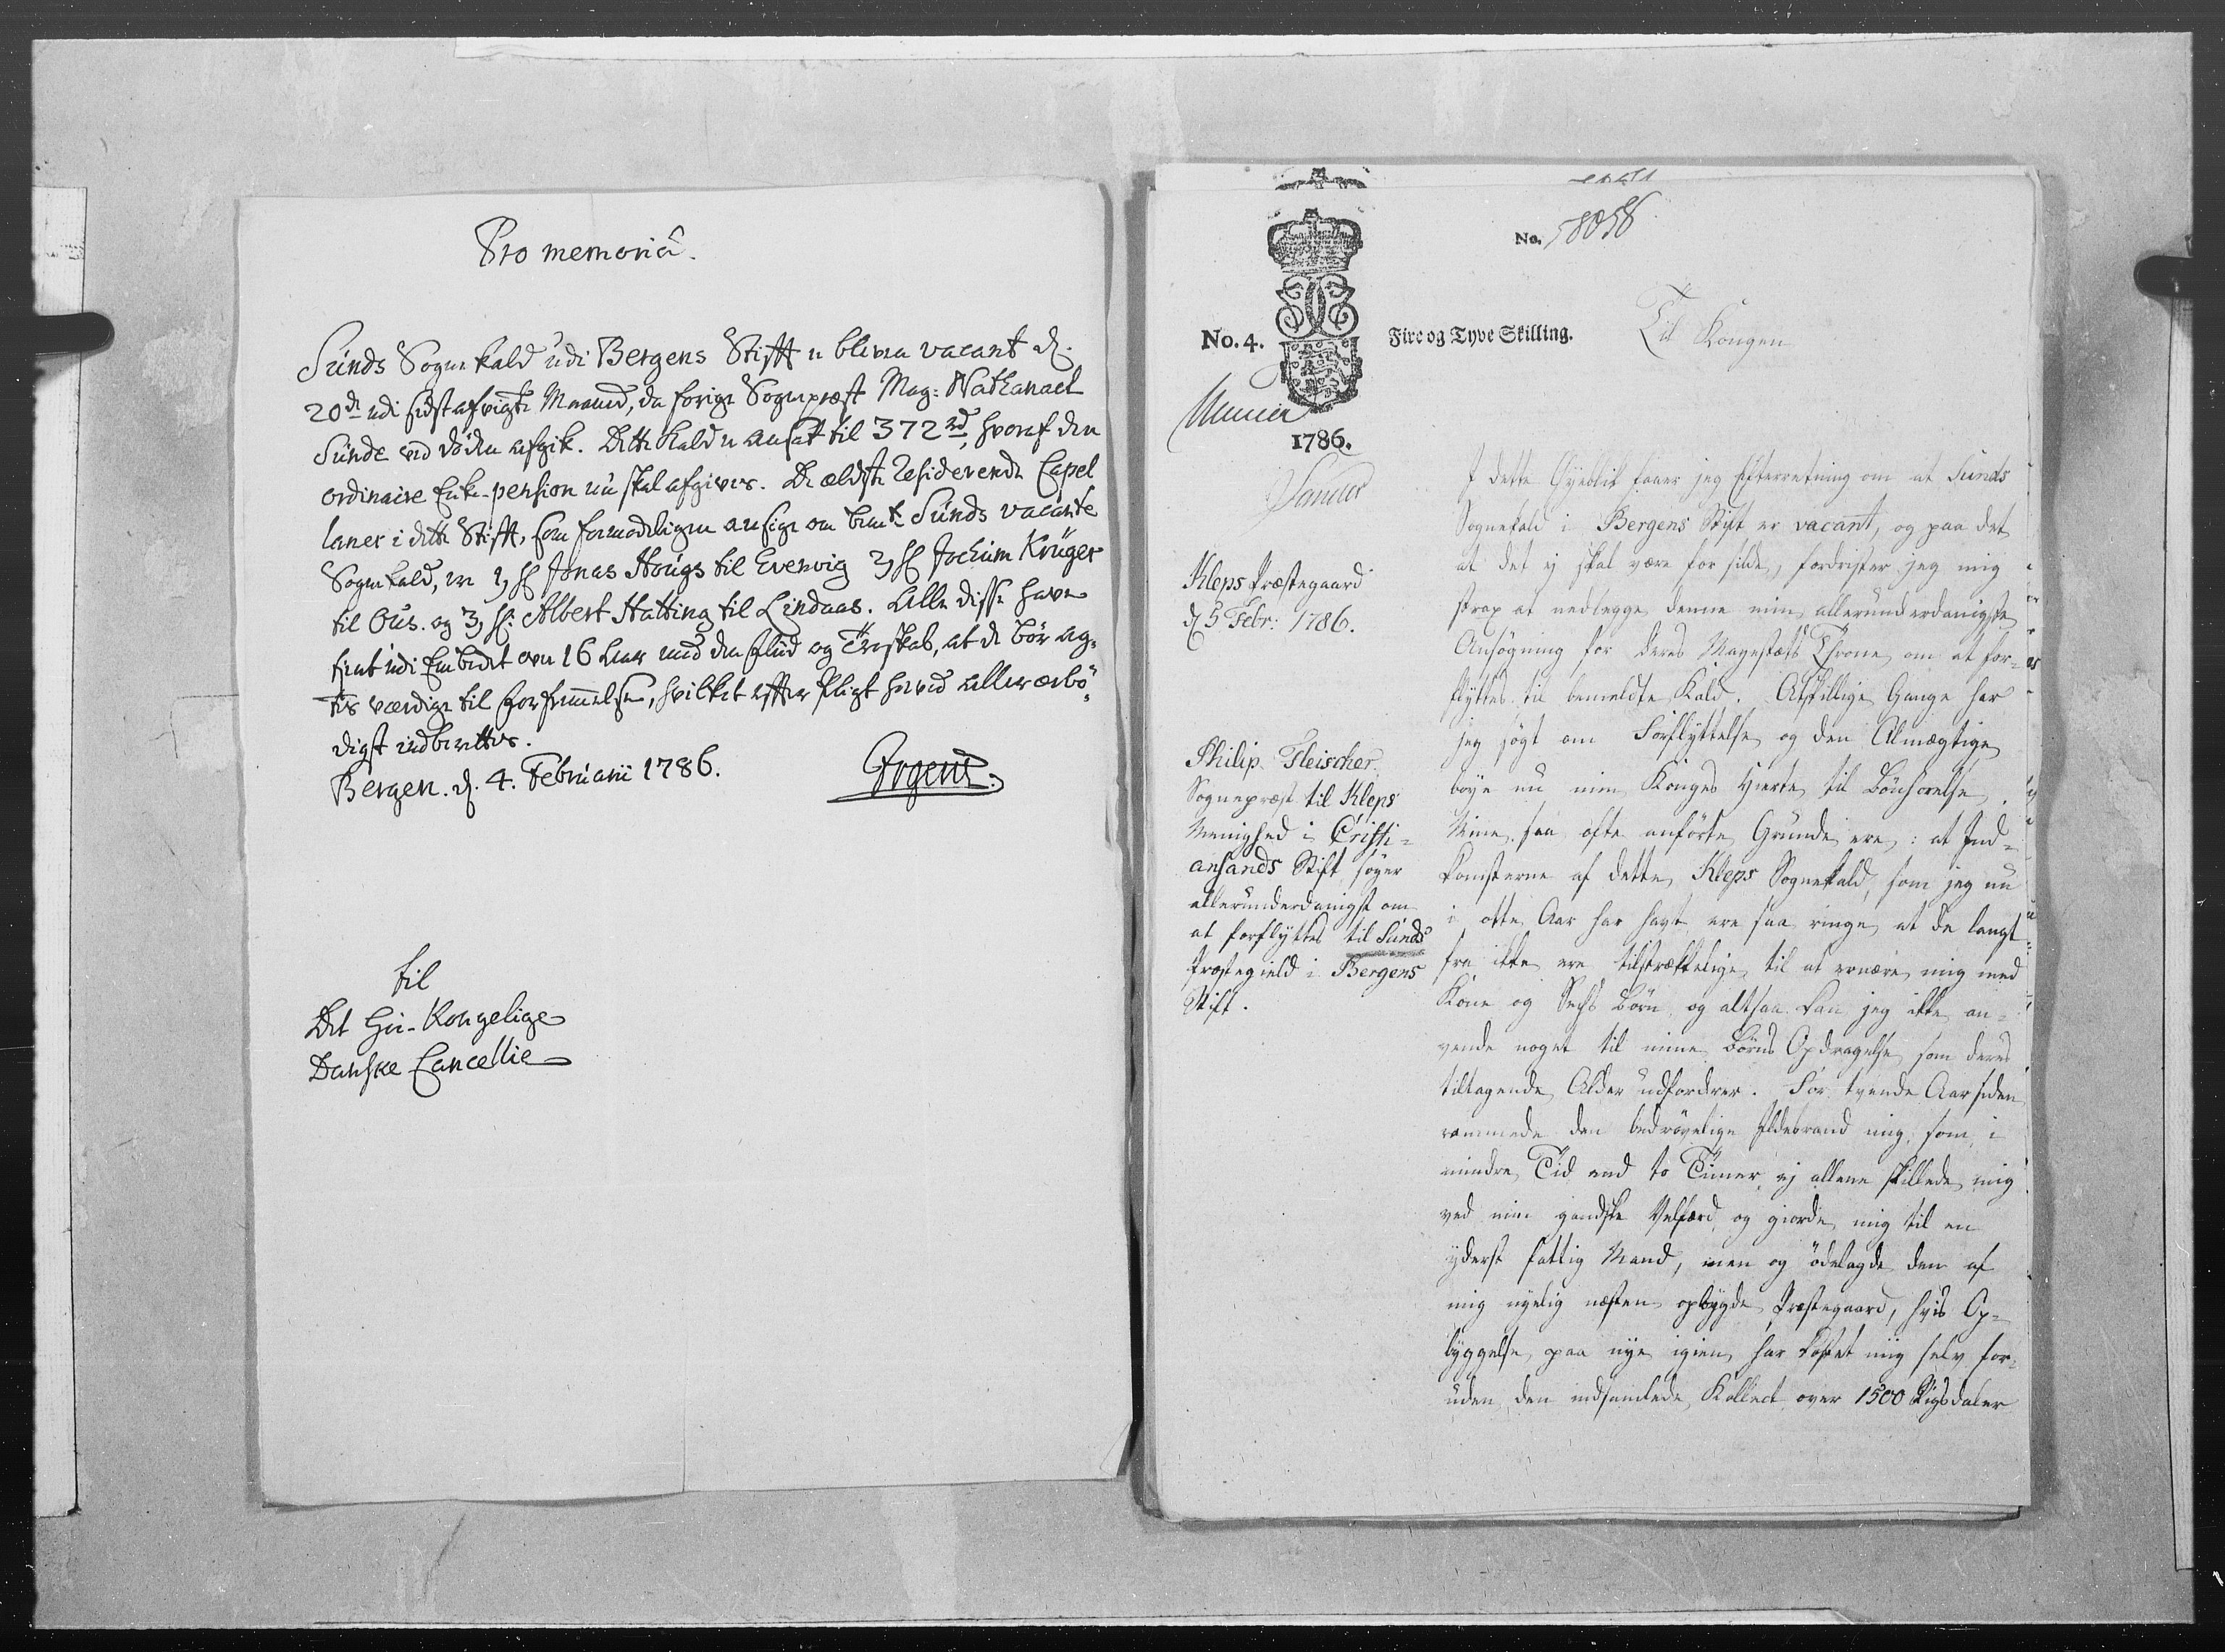 Pro memoriâ.
Sunds Sogne kald udi Bergens Stift er bleven vacant d.
20de udi sidst afvigte Maaned, da forige Sognepræst Mag: Nathanael
Sunde ved døden afgik. Dette kald er ansat til 372 rd, hvoraf den
ordinaire Enke-pension nu skal afgives. De ældste residerende Capel
laner i dette Stift, som formodeligen ansøge om bemte Sunds vacante
Sogne kald, ere 1, Hr Jonas Hougs til Evenvig 2, Hr Jochum Krüger
til Ous. og 3, Hr: Albert Hatting til Lindaas. Alle disse have
tient udi Embedet over 16 Aar med den flid og Troeskab, at de bør ag-
tes værdige til forfremmelse, hvilket efter Pligt herved allerærbö-
digst indberettes.
Bergen. d. 4. Februarii 1786.
Irgens.
til
Det Höi-Kongelige
Danske Cancellie
No. 18058
No. 4.
Fire og Tyve Skilling.
Til Kongen
1786.
Kleps Præstegaard
d 5 Febr: 1786.
Philip Fleischer
Sognepræst til Kleps
Menighed i Christi-
ansands Stift søger
allerunderdanigst om
at forflyttes til Sunds
Præstegield i Bergens
Stift.
I dette Øyeblik faaer jeg Efterretning om at Sunds
Sognekald i Bergens Stift er vacant, og paa det
at det ej skal være for silde, fordrister jeg mig
strax at nedlegge denne min allerunderdanigste
Ansøgning for Deres Mayestæts Throne om at for-
flyttes til bemeldte Kald. Atskillige Gange har
jeg søgt om Forflyttelse og den Almægtige
bøye nu min Konges Hierte til Bønhørelse.
Mine saa ofte anførte Grunde ere: at Ind-
komsterne af dette Kleps Sognekald, som jeg nu
i otte Aar har havt ere saa ringe, at de langt
fra ikke ere tilstrækkelige til at ernære mig med
Kone og Sex Børn og altsaa kan jeg ikke an-
vende noget til mine Børns Opdragelse som deres
tiltagende Alder udfordrer. For tvende Aar siden
rammede den bedrøvelige Ildebrand mig, som i
mindre Tid end to Timer ej allene skillede mig
ved min gandske Velfærd og giorde mig til en
yderst fattig Mand, men og ødelagde den af
mig nyelig næsten opbygde Præstegaard, hvis Op-
byggelse paa nye igien har kostet mig selv for-
uden den indsamlede Kollect over 1500 Rigsdaler